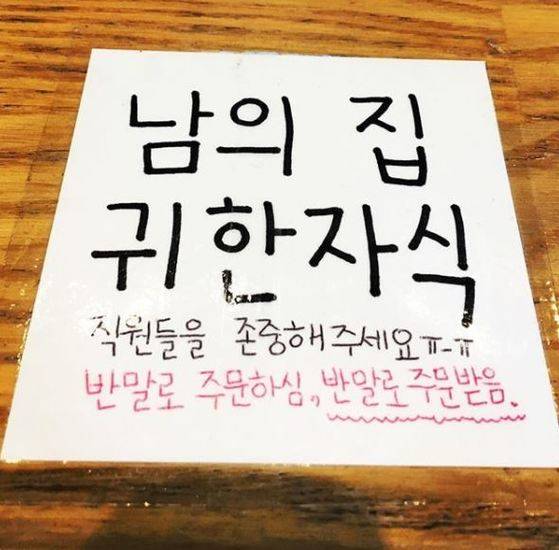 남의 집
귀한자식
직원들을 존중해주세요ㅠ-ㅠ
반말로 주문하심, 반말로 주문받음.